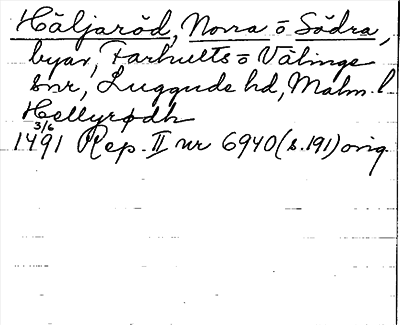 Häljaröd, Norra o Södra,
byar, Farhults o Välinge
snr, Luggude hd, Malm. l.
Hellyrødh
3/6
1491 Rep. II nr 6940 (s. 191) orig.